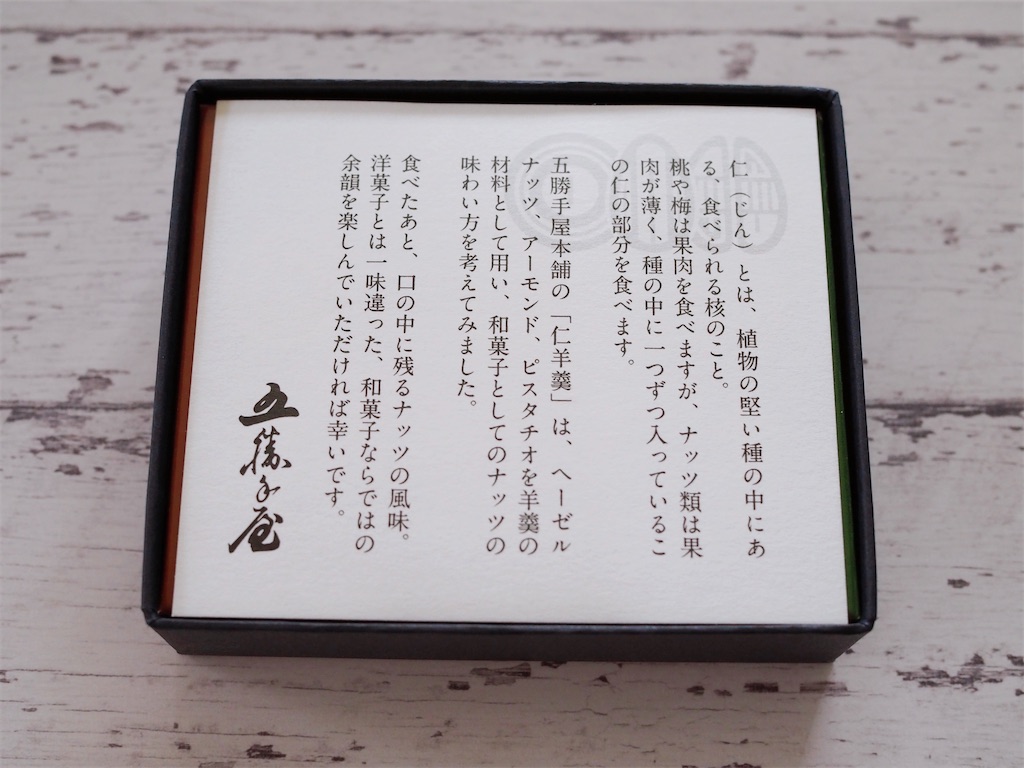 仁（じん）とは、植物の堅い種の中にあ
る、食べられる核のこと。
桃や梅は果肉を食べますが、ナッツ類は果
肉が薄く、種の中に一つずつ入っているこ
の仁の部分を食べます。
五勝手屋本舗の「仁羊羹」は、ヘーゼル
ナッツ、アーモンド、ピスタチオを羊羹の
材料として用い、和菓子としてのナッツの
味わい方を考えてみました。
食べたあと、口の中に残るナッツの風味。
洋菓子とは一味違った、和菓子ならではの
余韻を楽しんでいただければ幸いです。
五勝手屋